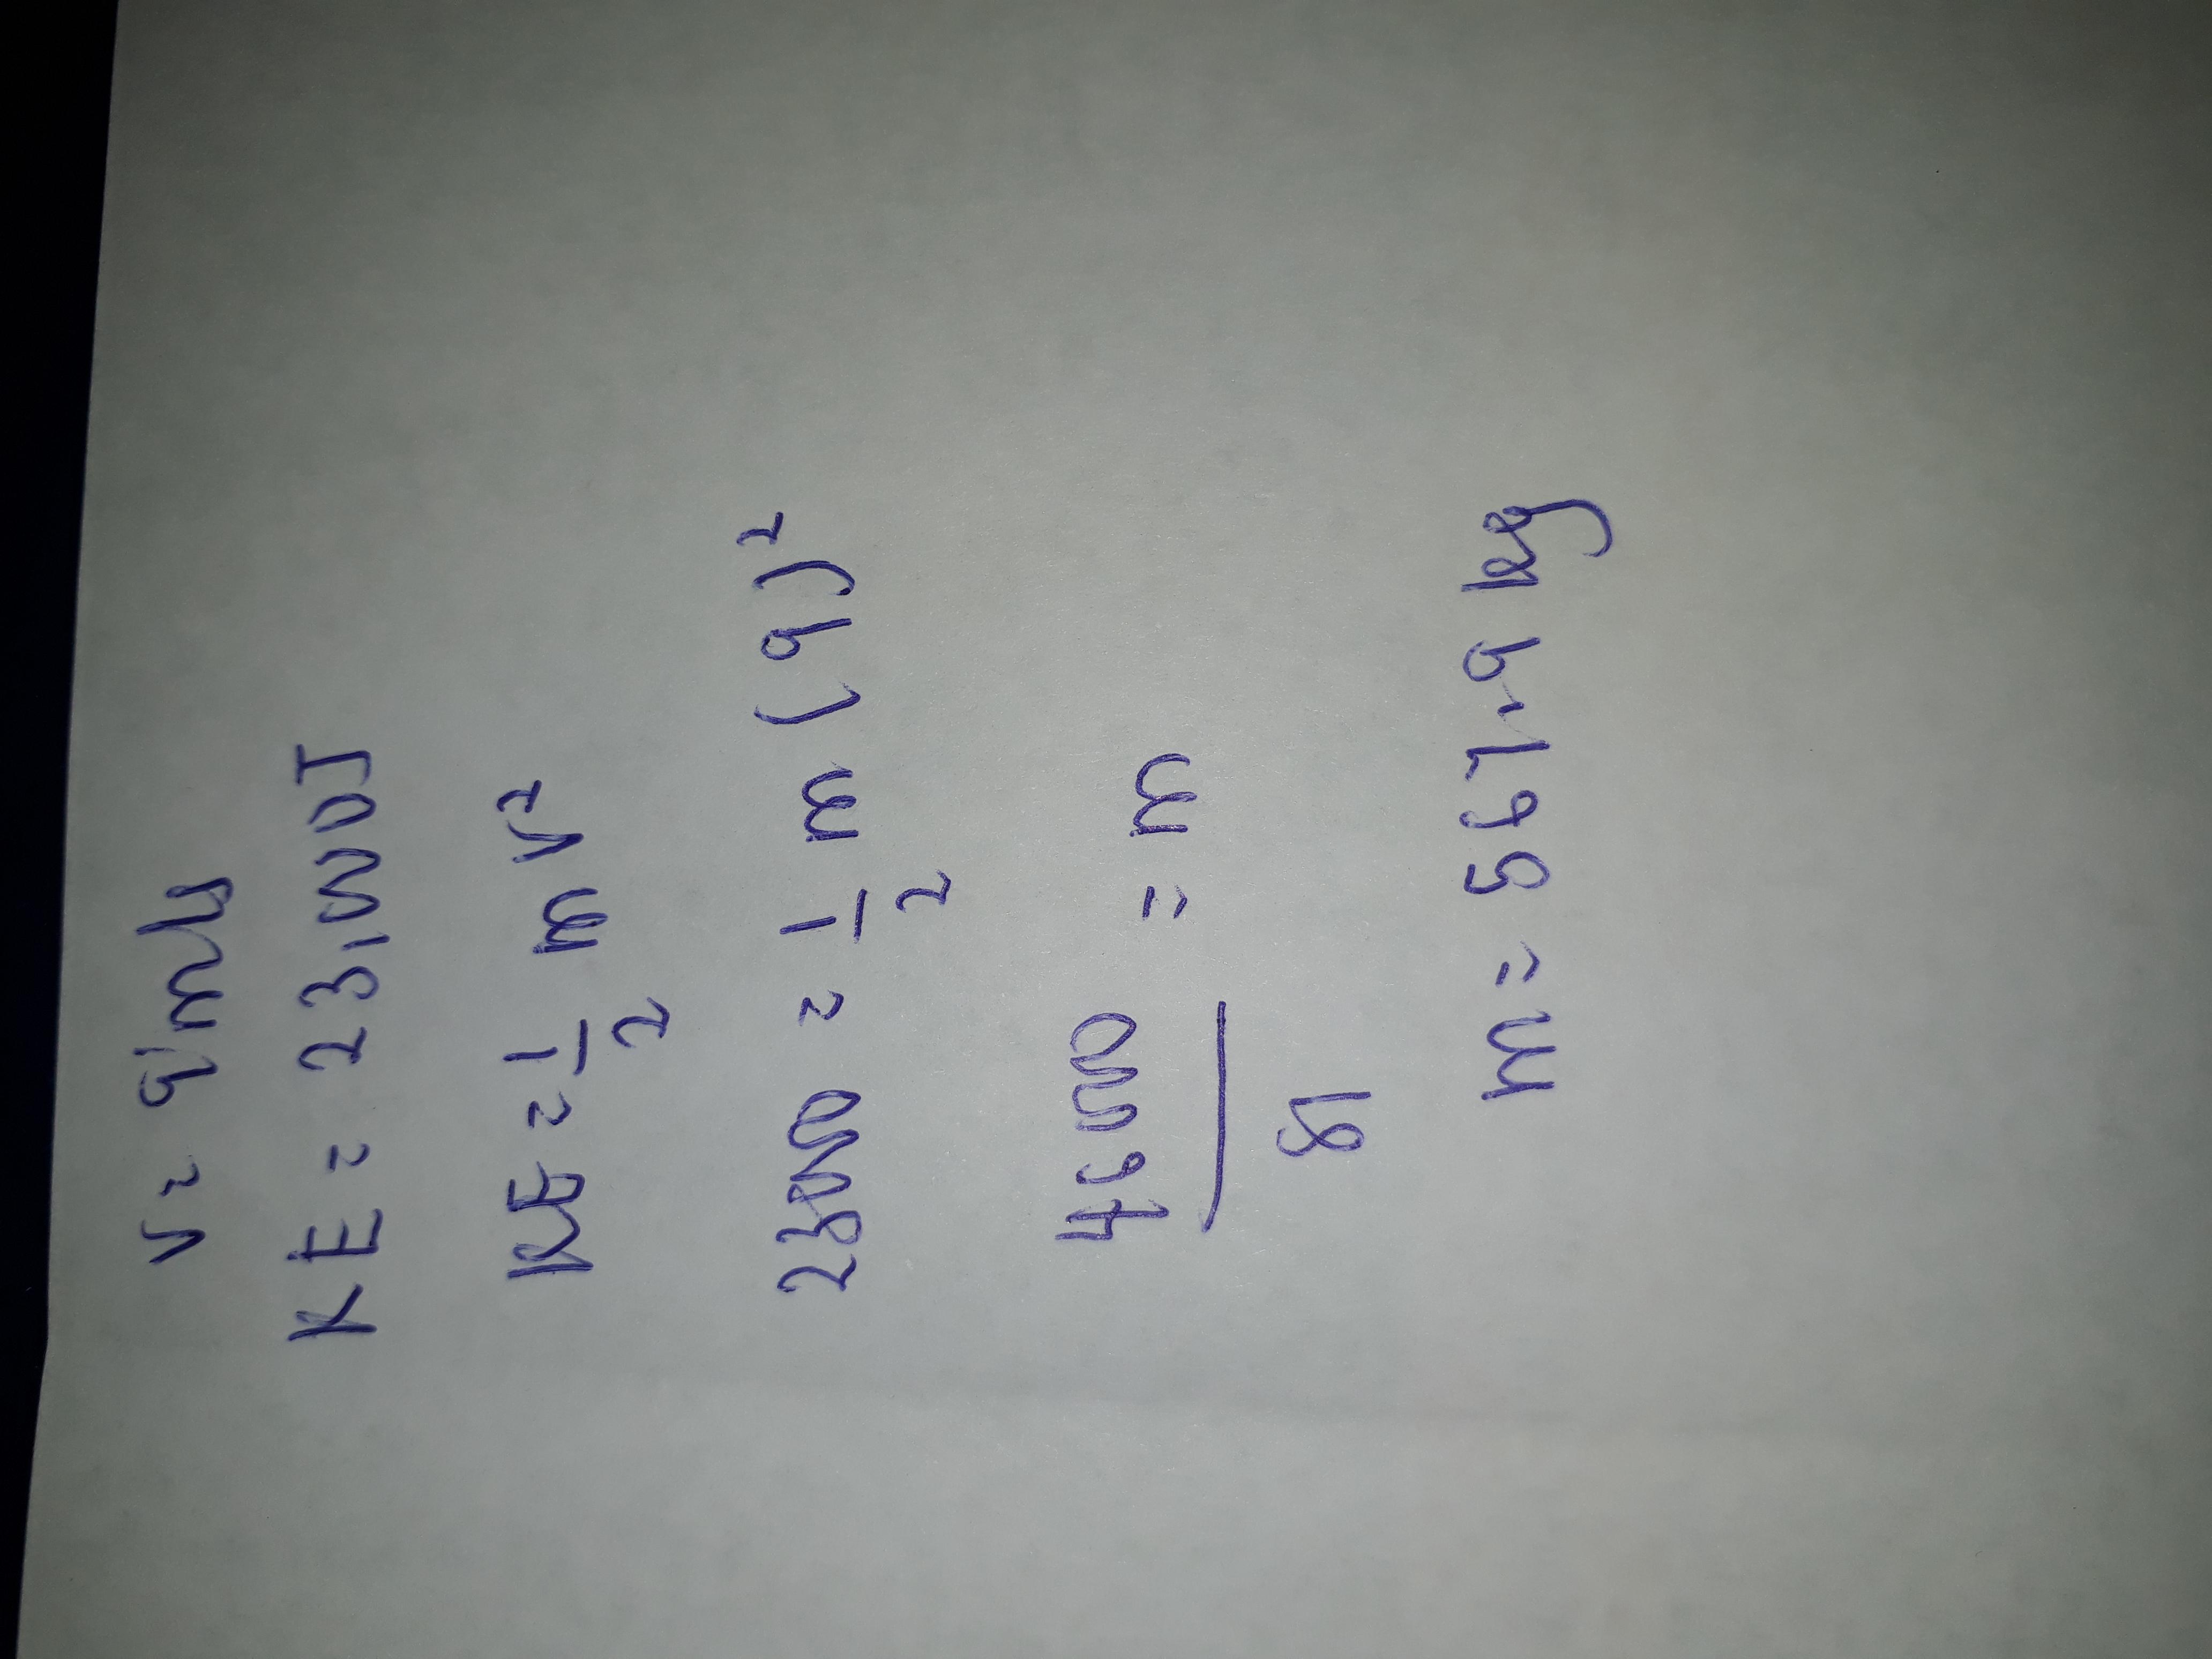 v = 9 m/s
KE = 23,000J
KE = 1/2 m v²
23000 = 1/2 m (9)²
46000/81 = m
m = 567.9 kg